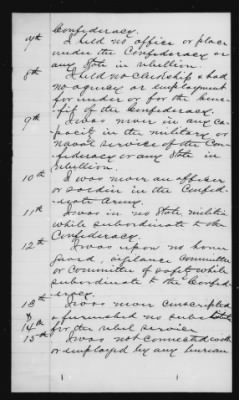 Confederacy.
7th I held no office or place
under the Confederacy or
any State in rebellion.
8th I held no clerkship & had
no agency or employment
for under or for the bene-
fit of the Confederacy.
9th I was never in any ca-
pacity in the military or
naval service of the Con-
federacy or any State in
rebellion.
10th I was never an officer
or soldier in the Confed-
erate Army.
11th I was in no State militia
while subordinate to the
Confederacy.
12th I was upon no home
guard, vigilance committee
or Committee of safety while
subordinate to the Confed-
eracy.
13th I was never conscripted
& & furnished no substitute
14th for the rebel service
15th I was not connected with
or employed by any bureau